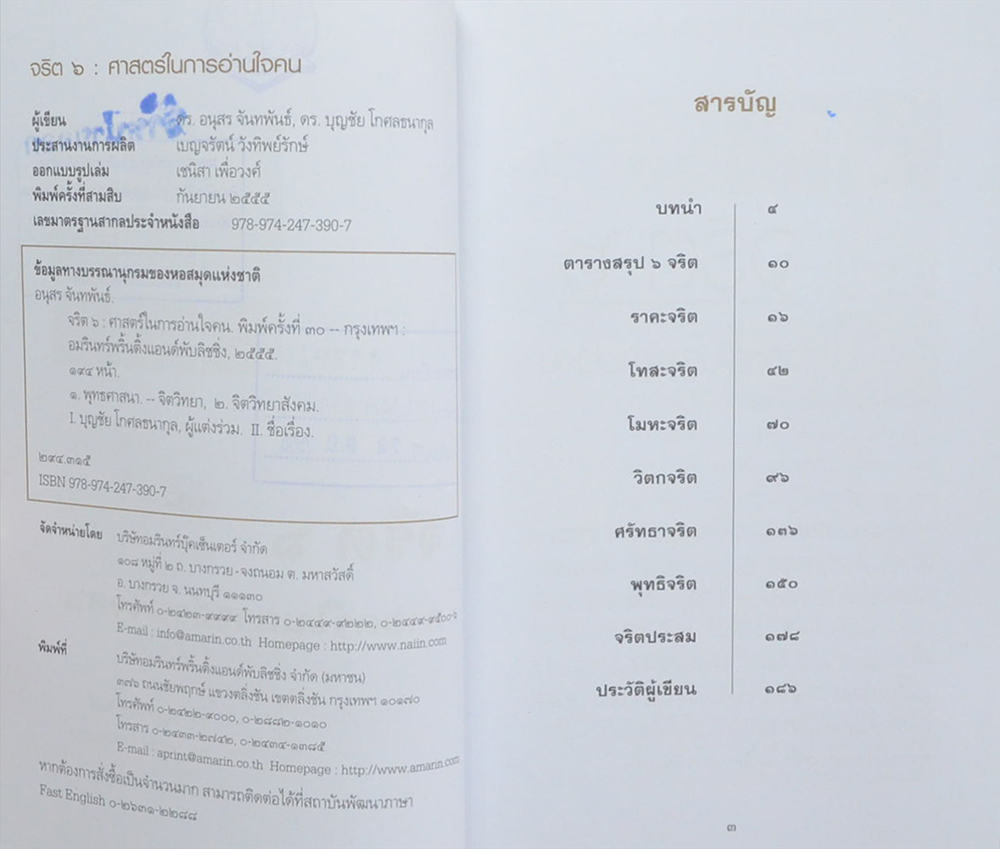 จริต ๖ : ศาสตร์ในการอ่านใจคน
ผู้เขียน ดร. อนุสร จันทพันธ์, ดร. บุญชัย โกศลธนากุล
ประสานงานการผลิต เบญจรัตน์ วังทิพย์รักษ์
ออกแบบรูปเล่ม เชนิสา เพื่อวงศ์
พิมพ์ครั้งที่สามสิบ กันยายน ๒๕๕๕
เลขมาตรฐานสากลประจำหนังสือ 978-974-247-390-7
ข้อมูลทางบรรณานุกรมของหอสมุดแห่งชาติ
อนุสร จันทพันธ์.
จริต ๖ : ศาสตร์ในการอ่านใจคน. พิมพ์ครั้งที่ ๓๐ -- กรุงเทพฯ :
อมรินทร์พริ้นติ้งแอนด์พับลิชชิ่ง, ๒๕๕๕.
๑๙๔ หน้า.
๑. พุทธศาสนา. -- จิตวิทยา, ๒. จิตวิทยาสังคม.
I. บุญชัย โกศลธนากุล, ผู้แต่งร่วม. II. ชื่อเรื่อง.
๒๙๔.๓๑๕
ISBN 978-974-247-390-7
จัดจำหน่ายโดย บริษัทอมรินทร์บุ๊คเซ็นเตอร์ จำกัด
๑๐๘ หมู่ที่ ๒ ถ. บางกรวย - จงถนอม ต. มหาสวัสดิ์
อ. บางกรวย จ. นนทบุรี ๑๑๑๓๐
โทรศัพท์ ๐-๒๔๒๓-๙๙๙๙ โทรสาร ๐-๒๔๔๙-๙๒๒๒, ๐-๒๔๔๙-๙๕๐๐-๖
E-mail : info@amarin.co.th Homepage : http://www.naiin.com
พิมพ์ที่ บริษัทอมรินทร์พริ้นติ้งแอนด์พับลิชชิ่ง จำกัด (มหาชน)
๓๗๖ ถนนชัยพฤกษ์ แขวงตลิ่งชัน เขตตลิ่งชัน กรุงเทพฯ ๑๐๑๗๐
โทรศัพท์ ๐-๒๔๒๒-๙๐๐๐, ๐-๒๘๘๒-๑๐๑๐
โทรสาร ๐-๒๔๓๓-๒๗๔๒, ๐-๒๔๓๔-๑๓๘๕
E-mail : aprint@amarin.co.th Homepage : http://www.amarin.com
หากต้องการสั่งซื้อเป็นจำนวนมาก สามารถติดต่อได้ที่สถาบันพัฒนาภาษา
Fast English ๐-๒๖๓๑-๒๒๘๘
สารบัญ
บทนำ ๔
ตารางสรุป ๖ จริต ๑๐
ราคะจริต ๑๖
โทสะจริต ๔๒
โมหะจริต ๗๐
วิตกจริต ๙๖
ศรัทธาจริต ๑๓๖
พุทธิจริต ๑๕๐
จริตประสม ๑๗๘
ประวัติผู้เขียน ๑๘๖
๓